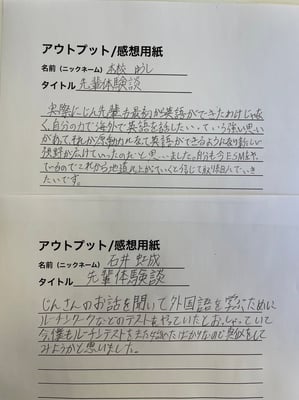 アウトプット/感想用紙
名前（ニックネーム）本絵 ゆうし
タイトル 先輩体験談
実際にじん先輩も最初から英語ができたわけじゃな
く、自分の力で海外で英語を話したいっていう強い思い
があって、それが原動力になって英語ができるようになり新しい
視野が広げていったのだと思いました。自分も今ESMをや
っているのでこれから地道に上がっていくと信じて取り組んでいき
たいです。
アウトプット/感想用紙
名前（ニックネーム）石井 虹成
タイトル 先輩体験談
じんさんのお話を聞いて外国語を学ぶために
ルーチンワークなどのテストをやっていたとおっしゃっていて
今、僕もルーチンテストをまた始めたばかりなので真似をして
みようかと思いました。